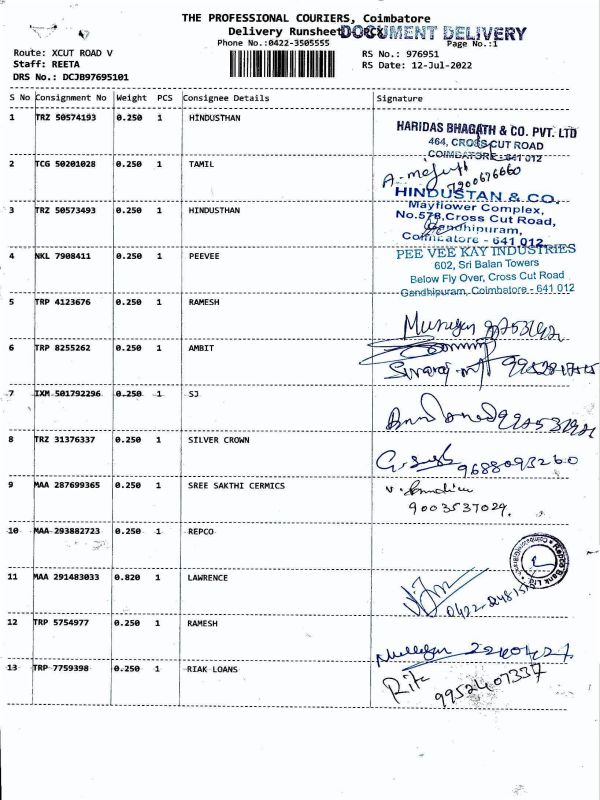 THE PROFESSIONAL COURIERS, Coimbatore
Delivery Runsheet
DOCUMENT DELIVERY
Phone No.:0422-3505555
Page No.:1
Route: XCUT ROAD V
RS No.: 976951
Staff: REETA
RS Date: 12-Jul-2022
DRS No.: DCJB97695101
S No Consignment No Weight PCS Consignee Details Signature
1 TRZ 50574193 0.250 1 HINDUSTHAN
HARIDAS BHAGATH & CO. PVT. LTD
464, CROSS CUT ROAD
COIMBATORE - 641 012
2 TCG 50201028 0.250 1 TAMIL
HINDUSTAN & CO.
Mayflower Complex,
3 TRZ 50573493 0.250 1 HINDUSTHAN
No.578,Cross Cut Road,
Gandhipuram,
Coimbatore - 641 012
4 NKL 7908411 0.250 1 PEEVEE
PEE VEE KAY INDUSTRIES
602, Sri Balan Towers
Below Fly Over, Cross Cut Road
Gandhipuram, Coimbatore - 641 012
5 TRP 4123676 0.250 1 RAMESH
Murugan
6 TRP 8255262 0.250 1 AMBIT
7 IXM 501792296 0.250 1 SJ
8 TRZ 31376337 0.250 1 SILVER CROWN
9688093260
9 MAA 287699365 0.250 1 SREE SAKTHI CERMICS
9003537029.
10 MAA 293882723 0.250 1 REPCO
Repco Bank Ltd
11 MAA 291483033 0.820 1 LAWRENCE
12 TRP 5754977 0.250 1 RAMESH
13 TRP 7759398 0.250 1 RIAK LOANS
9952407337